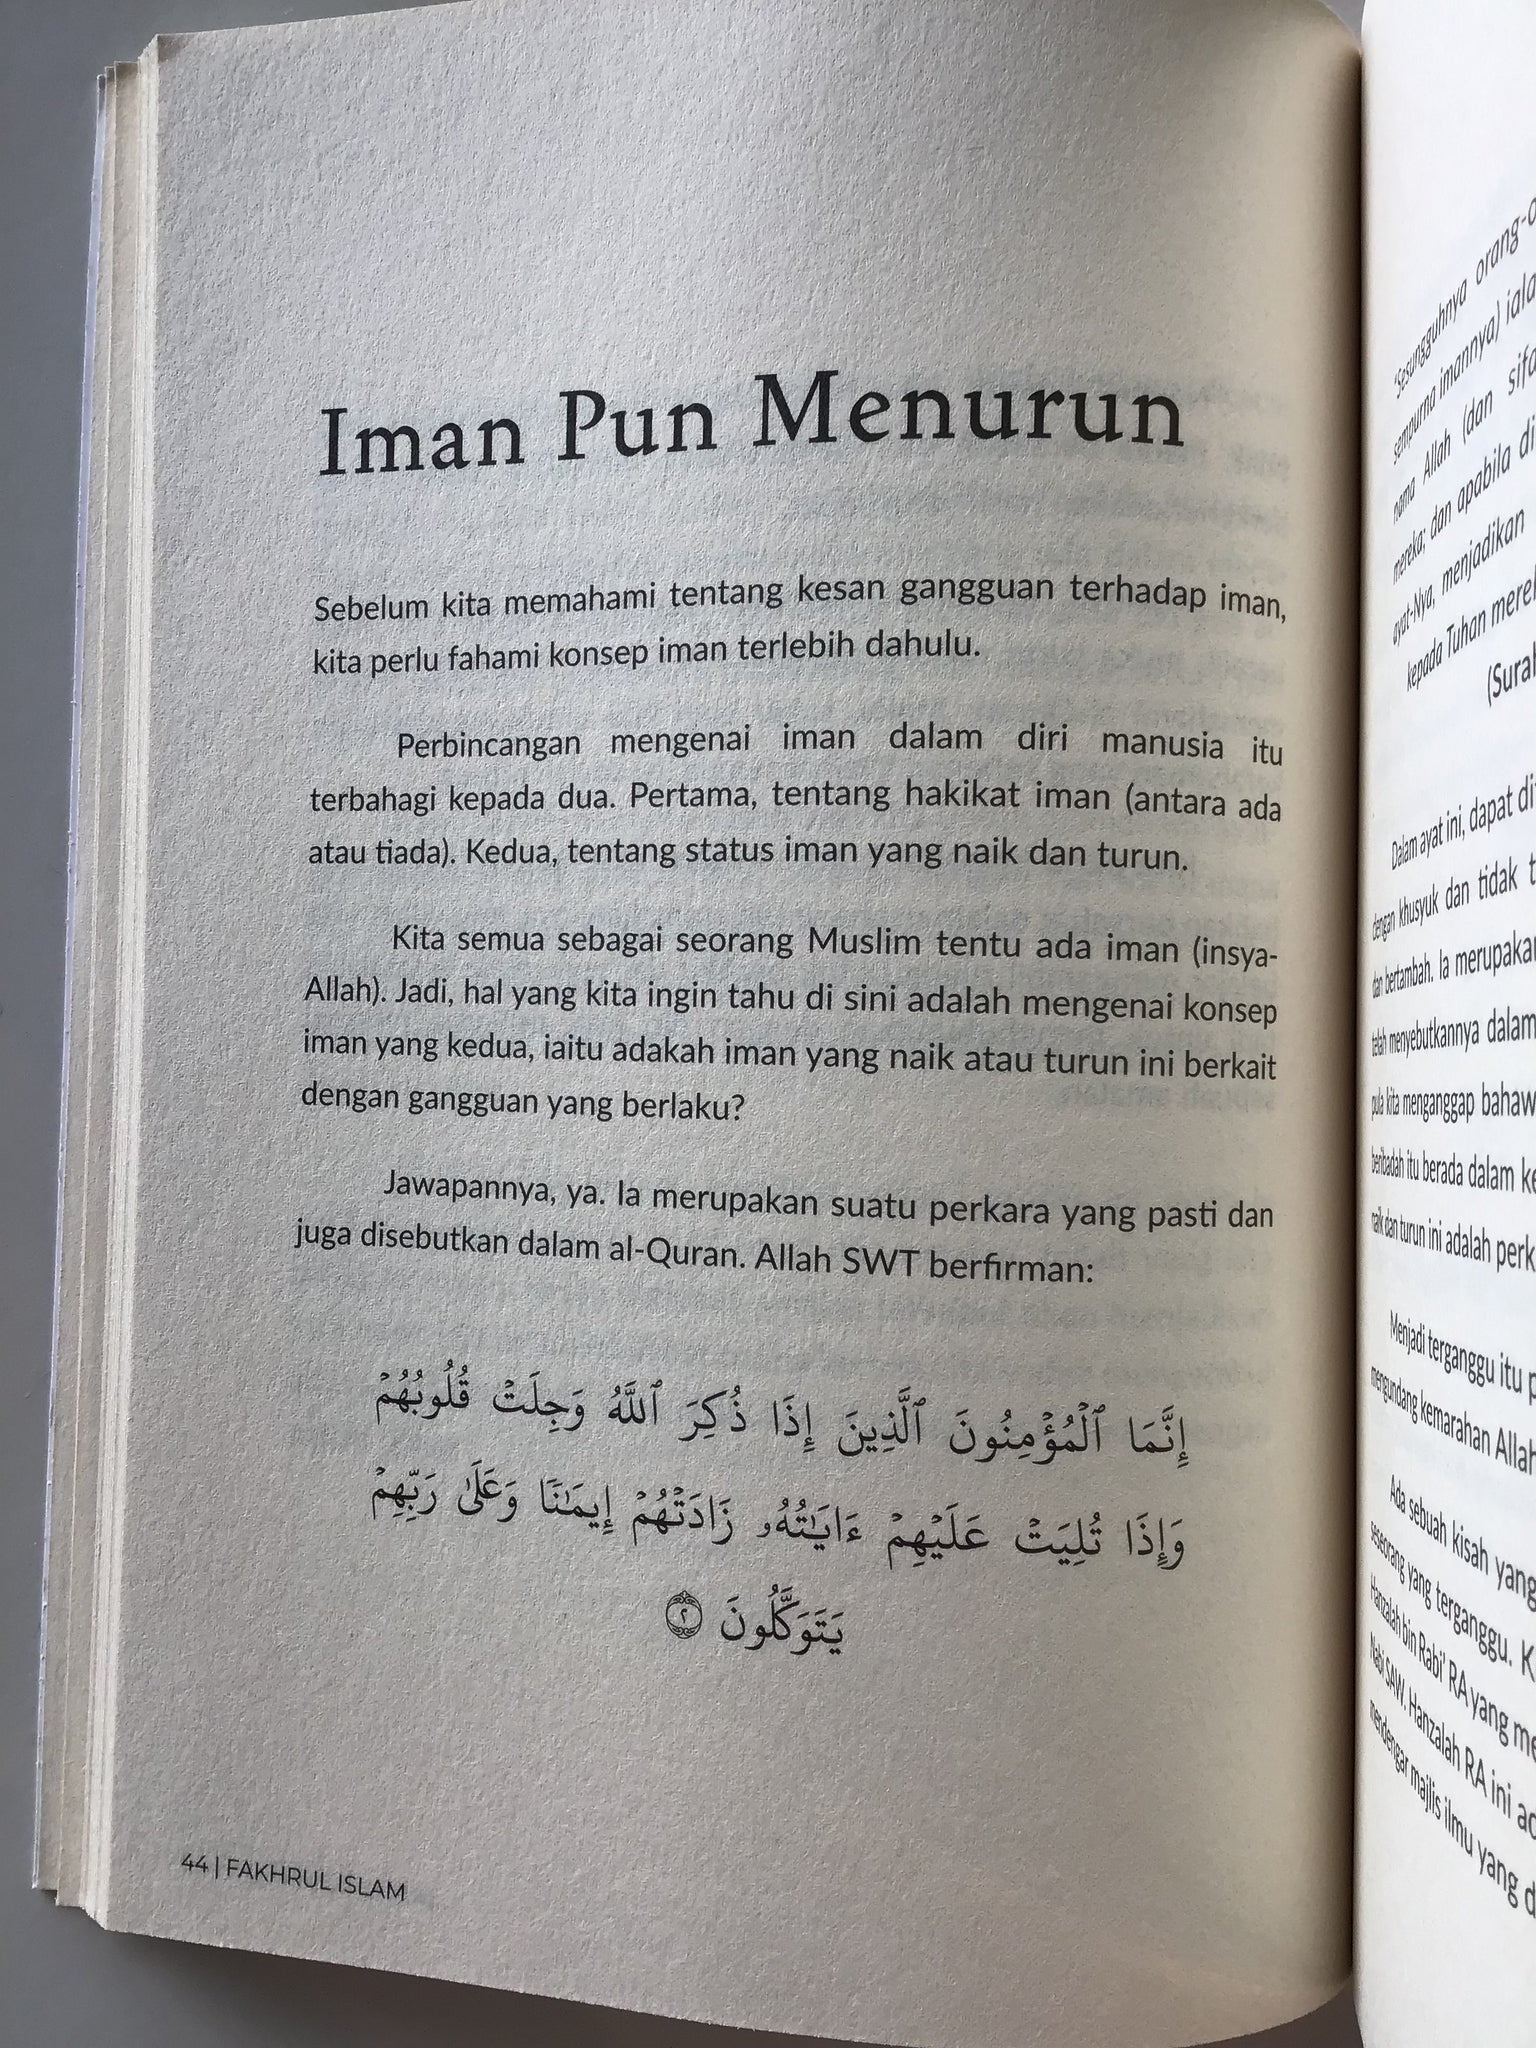 Iman Pun Menurun
Sebelum kita memahami tentang kesan gangguan terhadap iman,
kita perlu fahami konsep iman terlebih dahulu.
Perbincangan mengenai iman dalam diri manusia itu
terbahagi kepada dua. Pertama, tentang hakikat iman (antara ada
atau tiada). Kedua, tentang status iman yang naik dan turun.
Kita semua sebagai seorang Muslim tentu ada iman (insya-
Allah). Jadi, hal yang kita ingin tahu di sini adalah mengenai konsep
iman yang kedua, iaitu adakah iman yang naik atau turun ini berkait
dengan gangguan yang berlaku?
Jawapannya, ya. Ia merupakan suatu perkara yang pasti dan
juga disebutkan dalam al-Quran. Allah SWT berfirman:
إِنَّمَا ٱلْمُؤْمِنُونَ ٱلَّذِينَ إِذَا ذُكِرَ ٱللَّهُ وَجِلَتْ قُلُوبُهُمْ
وَإِذَا تُلِيَتْ عَلَيْهِمْ ءَايَـٰتُهُۥ زَادَتْهُمْ إِيمَـٰنًا وَعَلَىٰ رَبِّهِمْ
يَتَوَكَّلُونَ ٢
44 | FAKHRUL ISLAM
'Sesungguhnya
sempurna imannya)
nama Allah (dan
mereka; dan apabila
ayat-Nya, menjadikan
kepada Tuhan
Dalam ayat ini, dapat
dengan khusyuk dan tidak
dan bertambah. Ia
telah menyebutkannya dalam
pula kita menganggap
beribadah itu berada dalam
naik dan turun ini adalah
Menjadi terganggu itu
mengundang kemarahan
Ada sebuah kisah yang
seseorang yang terganggu.
Hanzalah bin Rabi' RA yang
Nabi SAW. Hanzalah RA ini
mendengar majlis ilmu yang